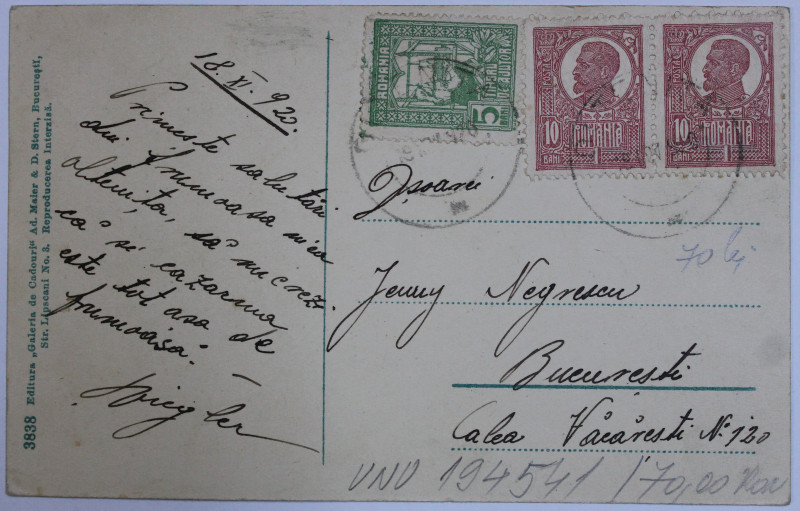 3838 Editura „Galeria de Cadouri" Ad. Maier & D. Stern, Bucureşti,
Str. Lipscani No. 3. Reproducerea Interzisă.
18.XI.920.
Primeste salutări
din frumoasa mea
Oltenița, să nu crezi
că si cazarma
este tot asa de
frumoasă. –
ROMANIA
5
10 ROMANIA 10
BANI 1 BANI
10 ROMANIA 10
BANI 1 BANI
Dșoarei
70 lei
Jenny Negrescu
Bucuresti
Calea Văcăresti No 120
VNU 194541 /70,00 Ron